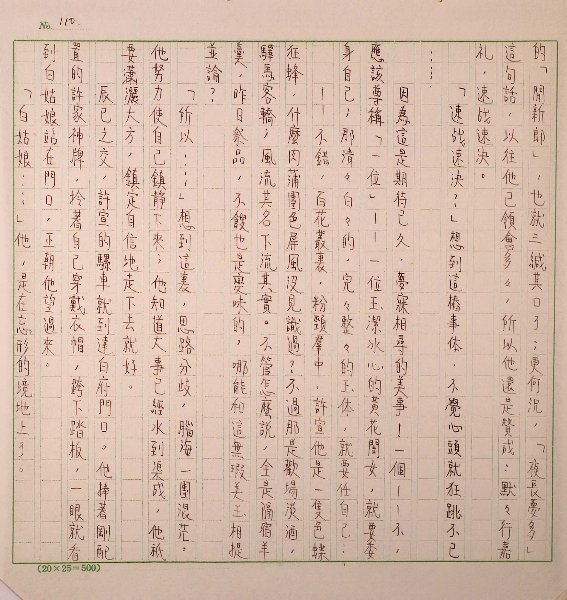 No. 110
的「閒新郎」，也就三緘其口了；更何況，「夜長夢多」
這句話，以往他已領會多々，所以他還是贊成：默々行嘉
礼，速战速決。
「速战速決？」想到這樁事体，不覺心頭就狂跳不已
……
因為這是期待已久，夢寐相尋的美事！一個——不，
應該尊稱「一位」——一位玉潔冰心的黃花閨女，就要委
身自己；那清々白々的，完々整々的玉体，就要任自己…
——不錯，百花叢裏，粉頸羣中，許宣他是一隻色蝶
狂蜂，什麼肉蒲團色屏風沒見識過？不過那是歡場淡酒，
驛馬客轎，風流其名下流其實。不管怎麼說，全是隔宿羊
羹，昨日祭品，不餿也是變味的，哪能和這無瑕美玉相提
並論？
「所以……」想到這裏，思路分歧，腦海一團混茫。
他努力使自己鎮靜下來；他知道大事已經水到渠成，他祇
要瀟灑大方，鎮定自信地走下去就好。
辰巳之交，許宣的騾車就到達白府門口。他捧著剛配
置的許家神牌，拎著自己穿戴衣帽，跨下踏板，一眼就看
到白姑娘站在門口，正朝他望過來。
「白姑娘……」他，是在忘形的境地上了。
(20×25=500)